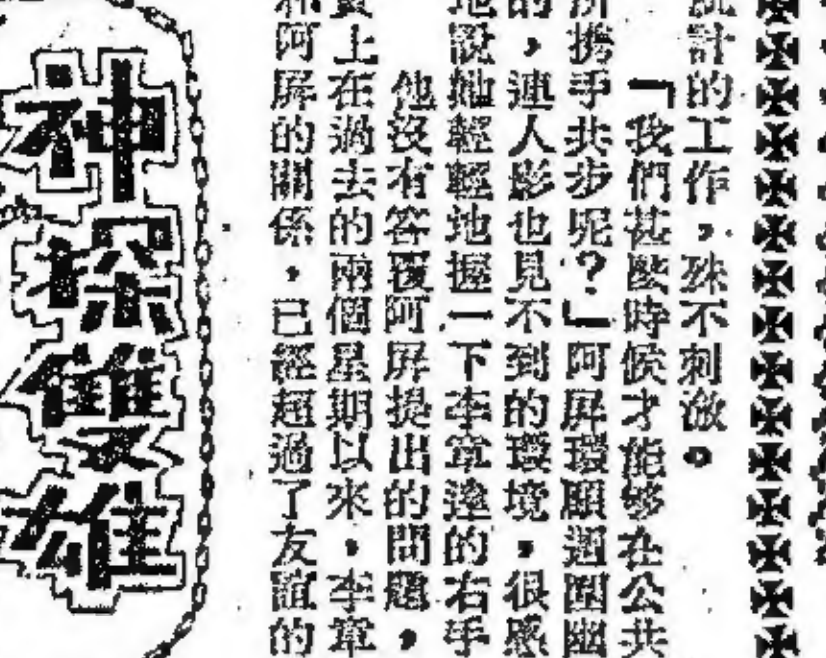 統計的工作，殊不刺激。
「我們甚麼時候才能够在公共
所攜手共步呢？」阿屏環顧週圍幽
的，連人影也見不到的環境，很感
地說她輕輕地握一下李章達的右手
他沒有答覆阿屏提出的問題，
實上在過去的兩個星期以來，李章
和阿屏的關係，已經超過了友誼的
神探雙雄